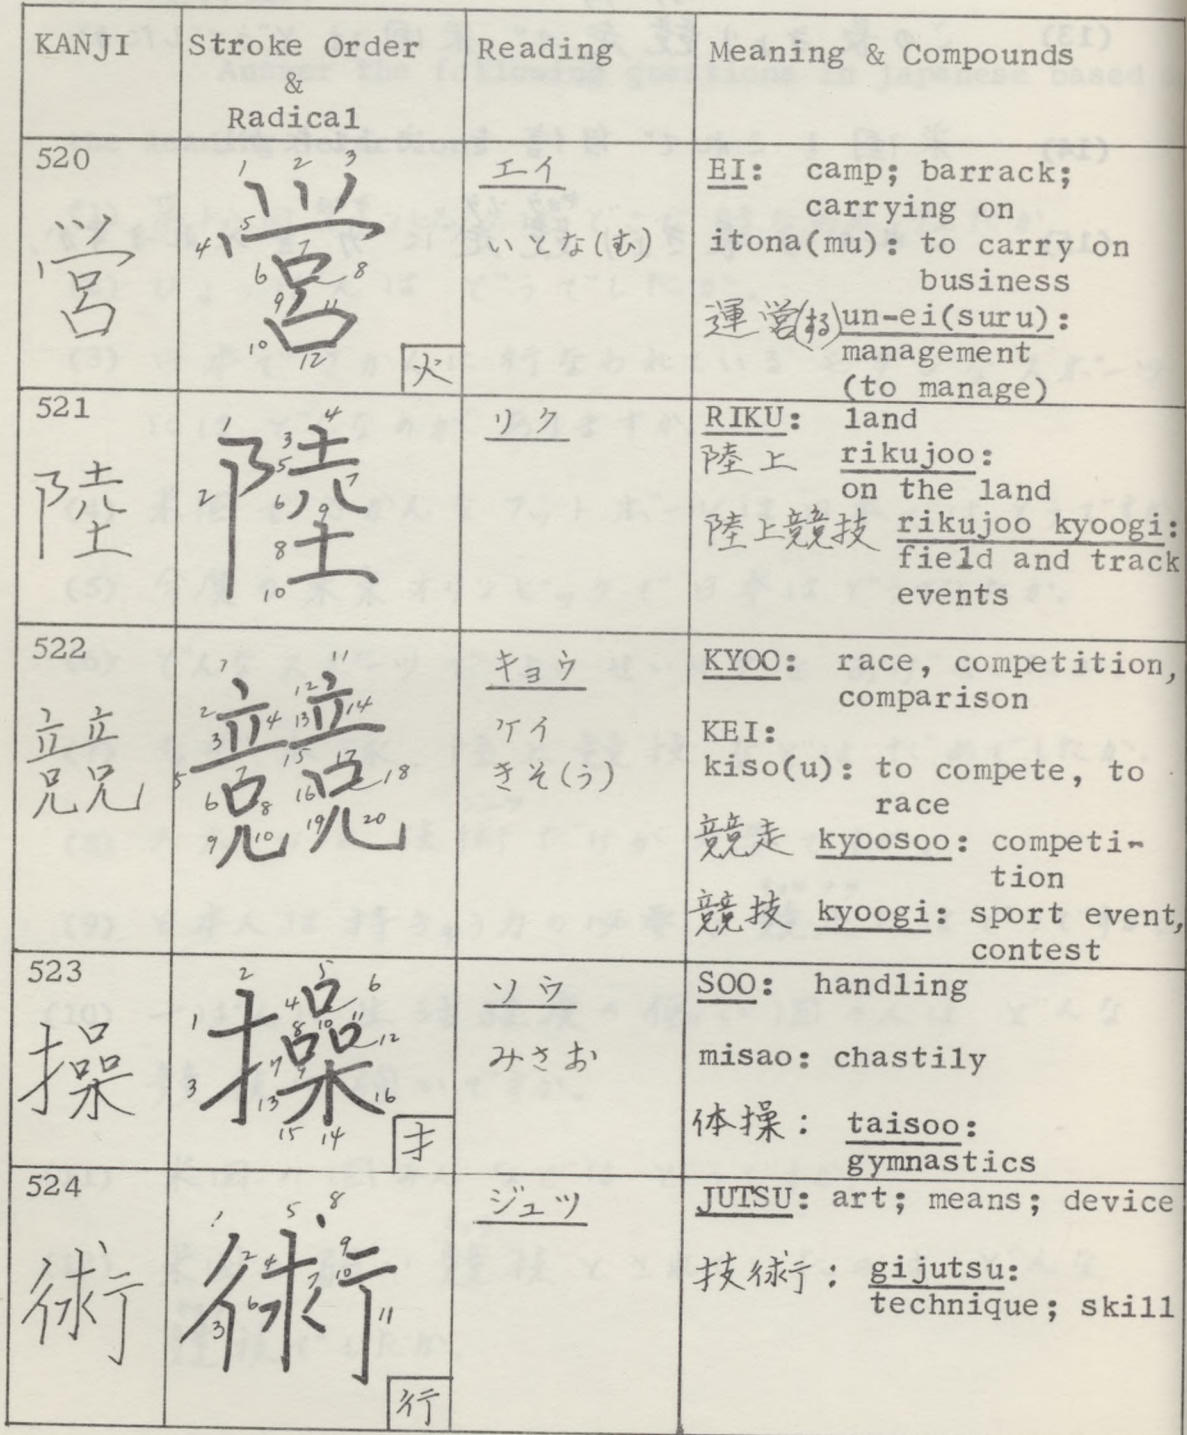 KANJI
Stroke Order
&
Radical
Reading
Meaning & Compounds
520
営
1 2 3 4 5 6 7 8 9 10 11 12
営
火
エイ
いとな(む)
EI: camp; barrack;
carrying on
itona(mu): to carry on
business
運営(する) un-ei(suru):
management
(to manage)
521
陸
1 2 3 4 5 6 7 8 9 10
陸
リク
RIKU: land
陸上 rikujoo:
on the land
陸上競技 rikujoo kyoogi:
field and track
events
522
競
競
キョウ
ケイ
きそ(う)
KYOO: race, competition,
comparison
KEI:
kiso(u): to compete, to
race
競走 kyoosoo: competi-
tion
競技 kyoogi: sport event,
contest
523
操
操
扌
ソウ
みさお
SOO: handling
misao: chastily
体操: taisoo:
gymnastics
524
術
術
行
ジュツ
JUTSU: art; means; device
技術: gijutsu:
technique; skill